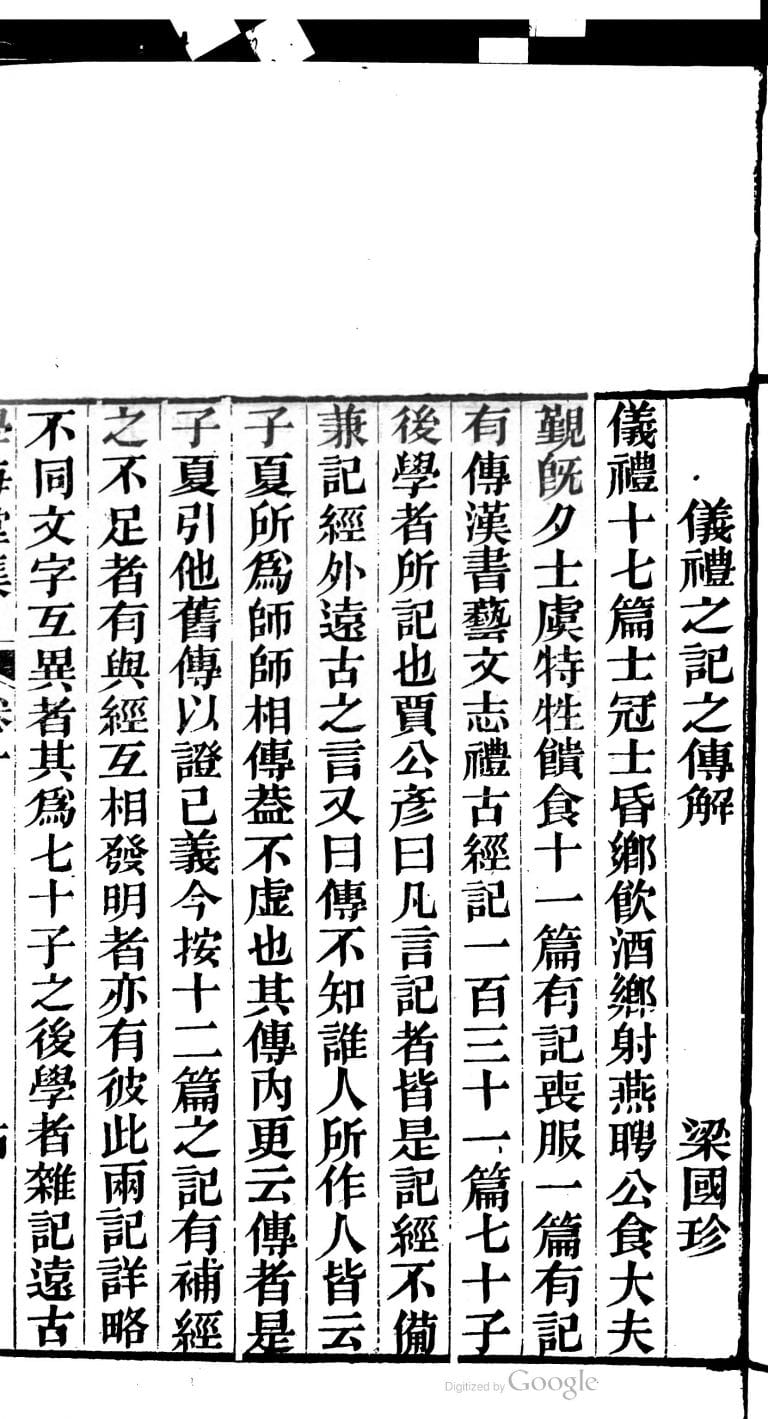 儀禮之記之傳解 梁國珍
儀禮十七篇士冠士昏鄉飮酒鄉射燕聘公食大夫
覲旣夕士虞特牲饋食十一篇有記喪服一篇有記
有傳漢書藝文志禮古經記一百三十一篇七十子
後學者所記也賈公彥曰凡言記者皆是記經不備
兼記經外遠古之言又曰傳不知誰人所作人皆云
子夏所爲師師相傳葢不虛也其傳內更云傳者是
子夏引他舊傳以證己義今按十二篇之記有補經
之不足者有與經互相發明者亦有彼此兩記詳略
不同文字互異者其爲七十子之後學者雜記遠古
Digitized by Google